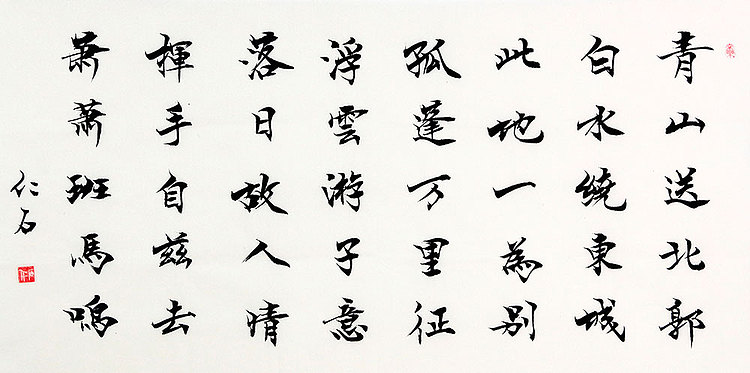 青山送北郭
白水繞東城
此地一為别
孤蓬万里征
浮雲游子意
落日故人晴
揮手自兹去
蕭蕭班馬鳴
仁石